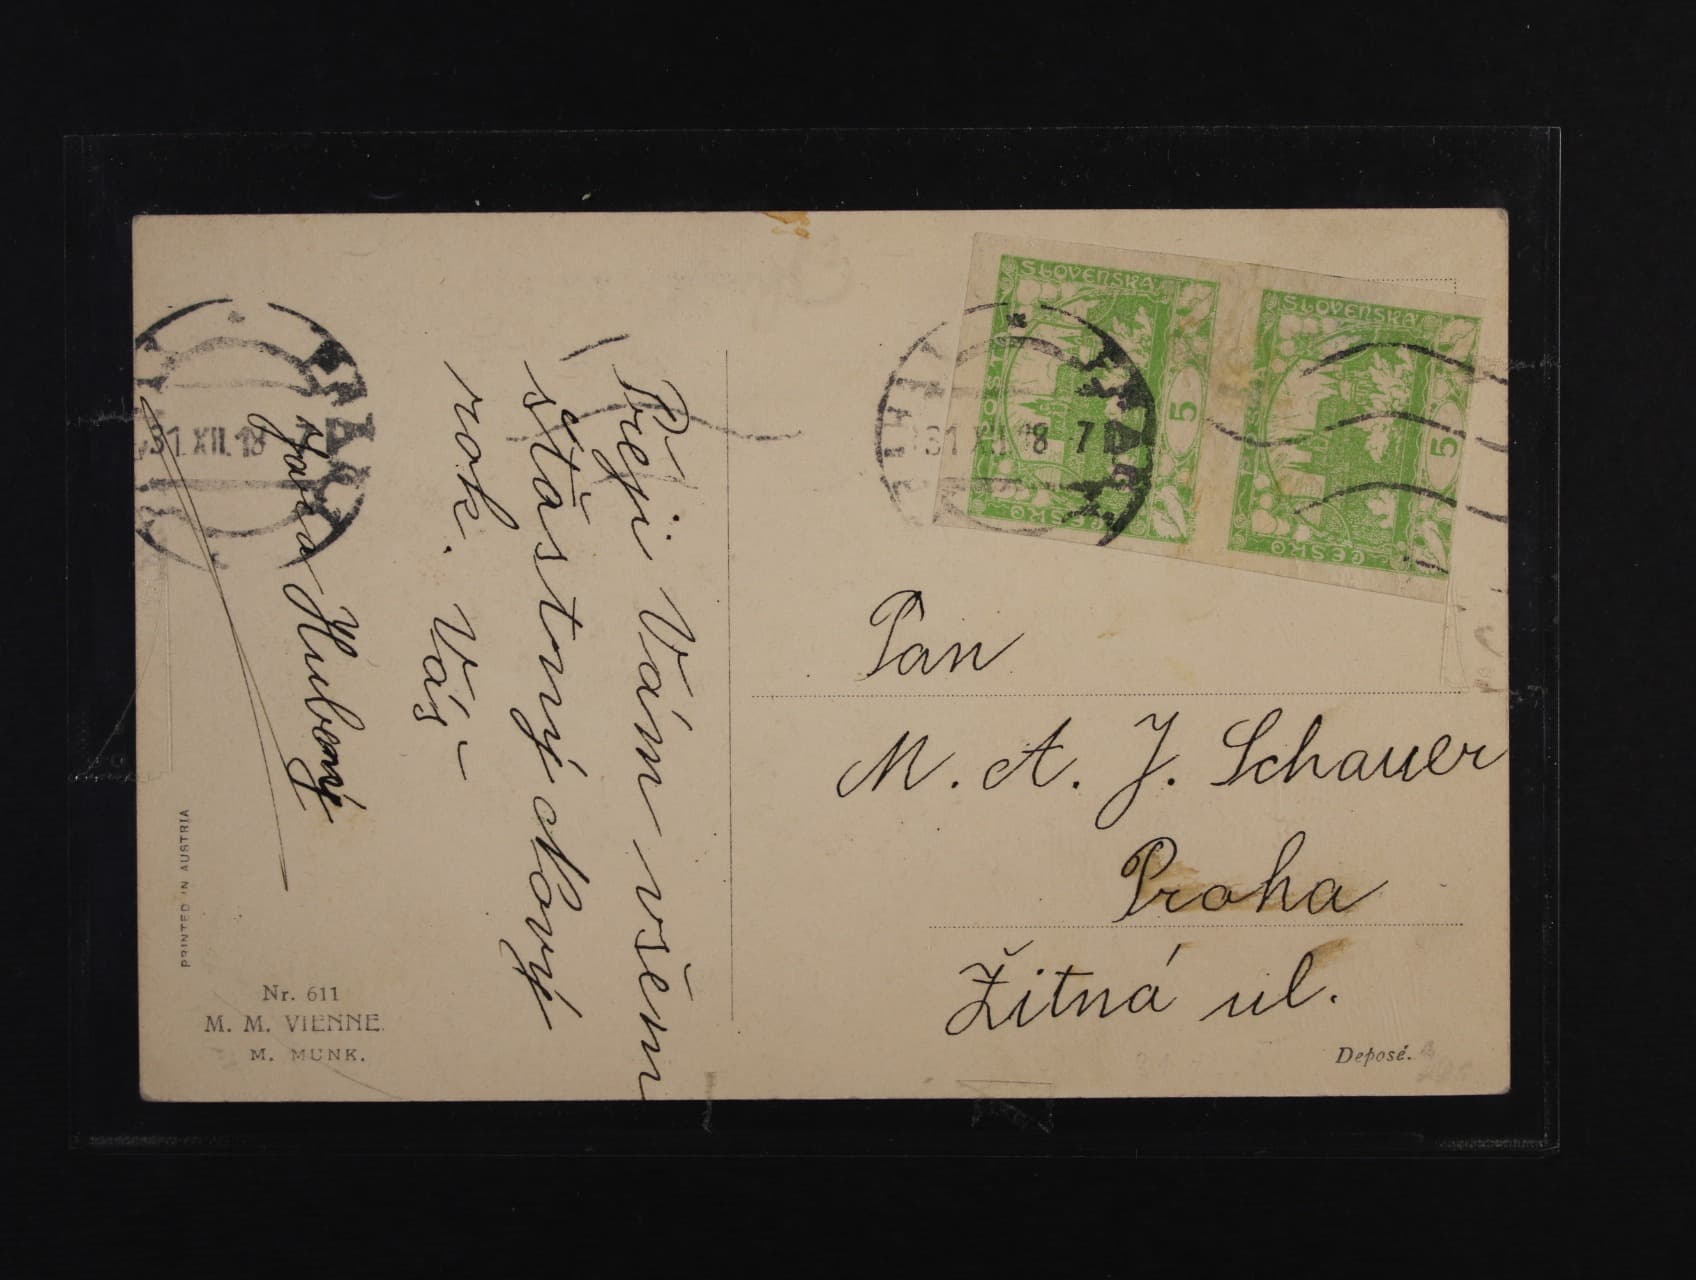 Přeji Vám všem
šťastný Nový
rok. Váš –
Hubený
31.XII.18
PRINTED IN AUSTRIA
Nr. 611
M. M. VIENNE.
M. MUNK.
31 XII 18 7
SLOVENSKA
POŠTA
ČESKO
5
SLOVENSKA
ČESKO
5
Pan
M. A. J. Schauer
Praha
Žitná ul.
Deposé.